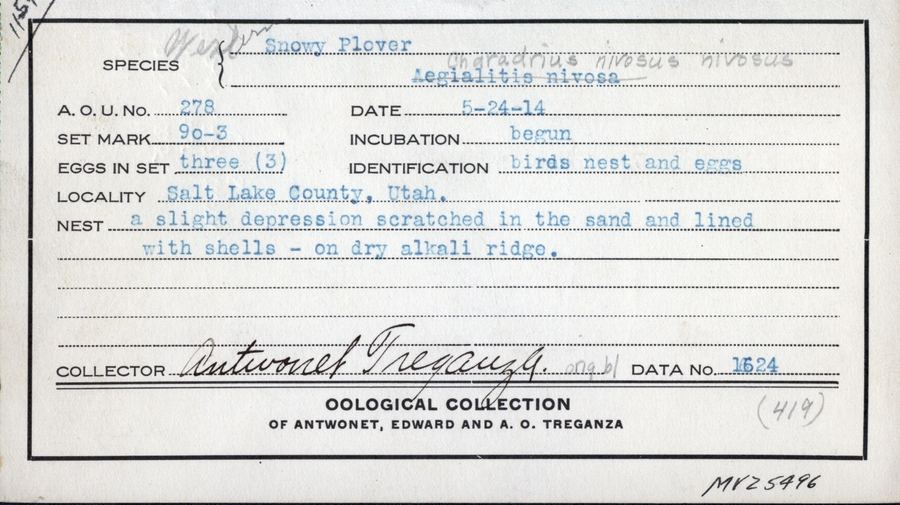 Western Snowy Plover
Charadrius nivosus nivosus
SPECIES { Aegialitis nivosa
A. O. U. No. 278 DATE 5-24-14
SET MARK 9o-3 INCUBATION begun
EGGS IN SET three (3) IDENTIFICATION birds nest and eggs
LOCALITY Salt Lake County, Utah.
NEST a slight depression scratched in the sand and lined
with shells - on dry alkali ridge.
COLLECTOR Antwonet Treganza. DATA No. 1624
OOLOGICAL COLLECTION
OF ANTWONET, EDWARD AND A. O. TREGANZA
(419)
MVZ 5496